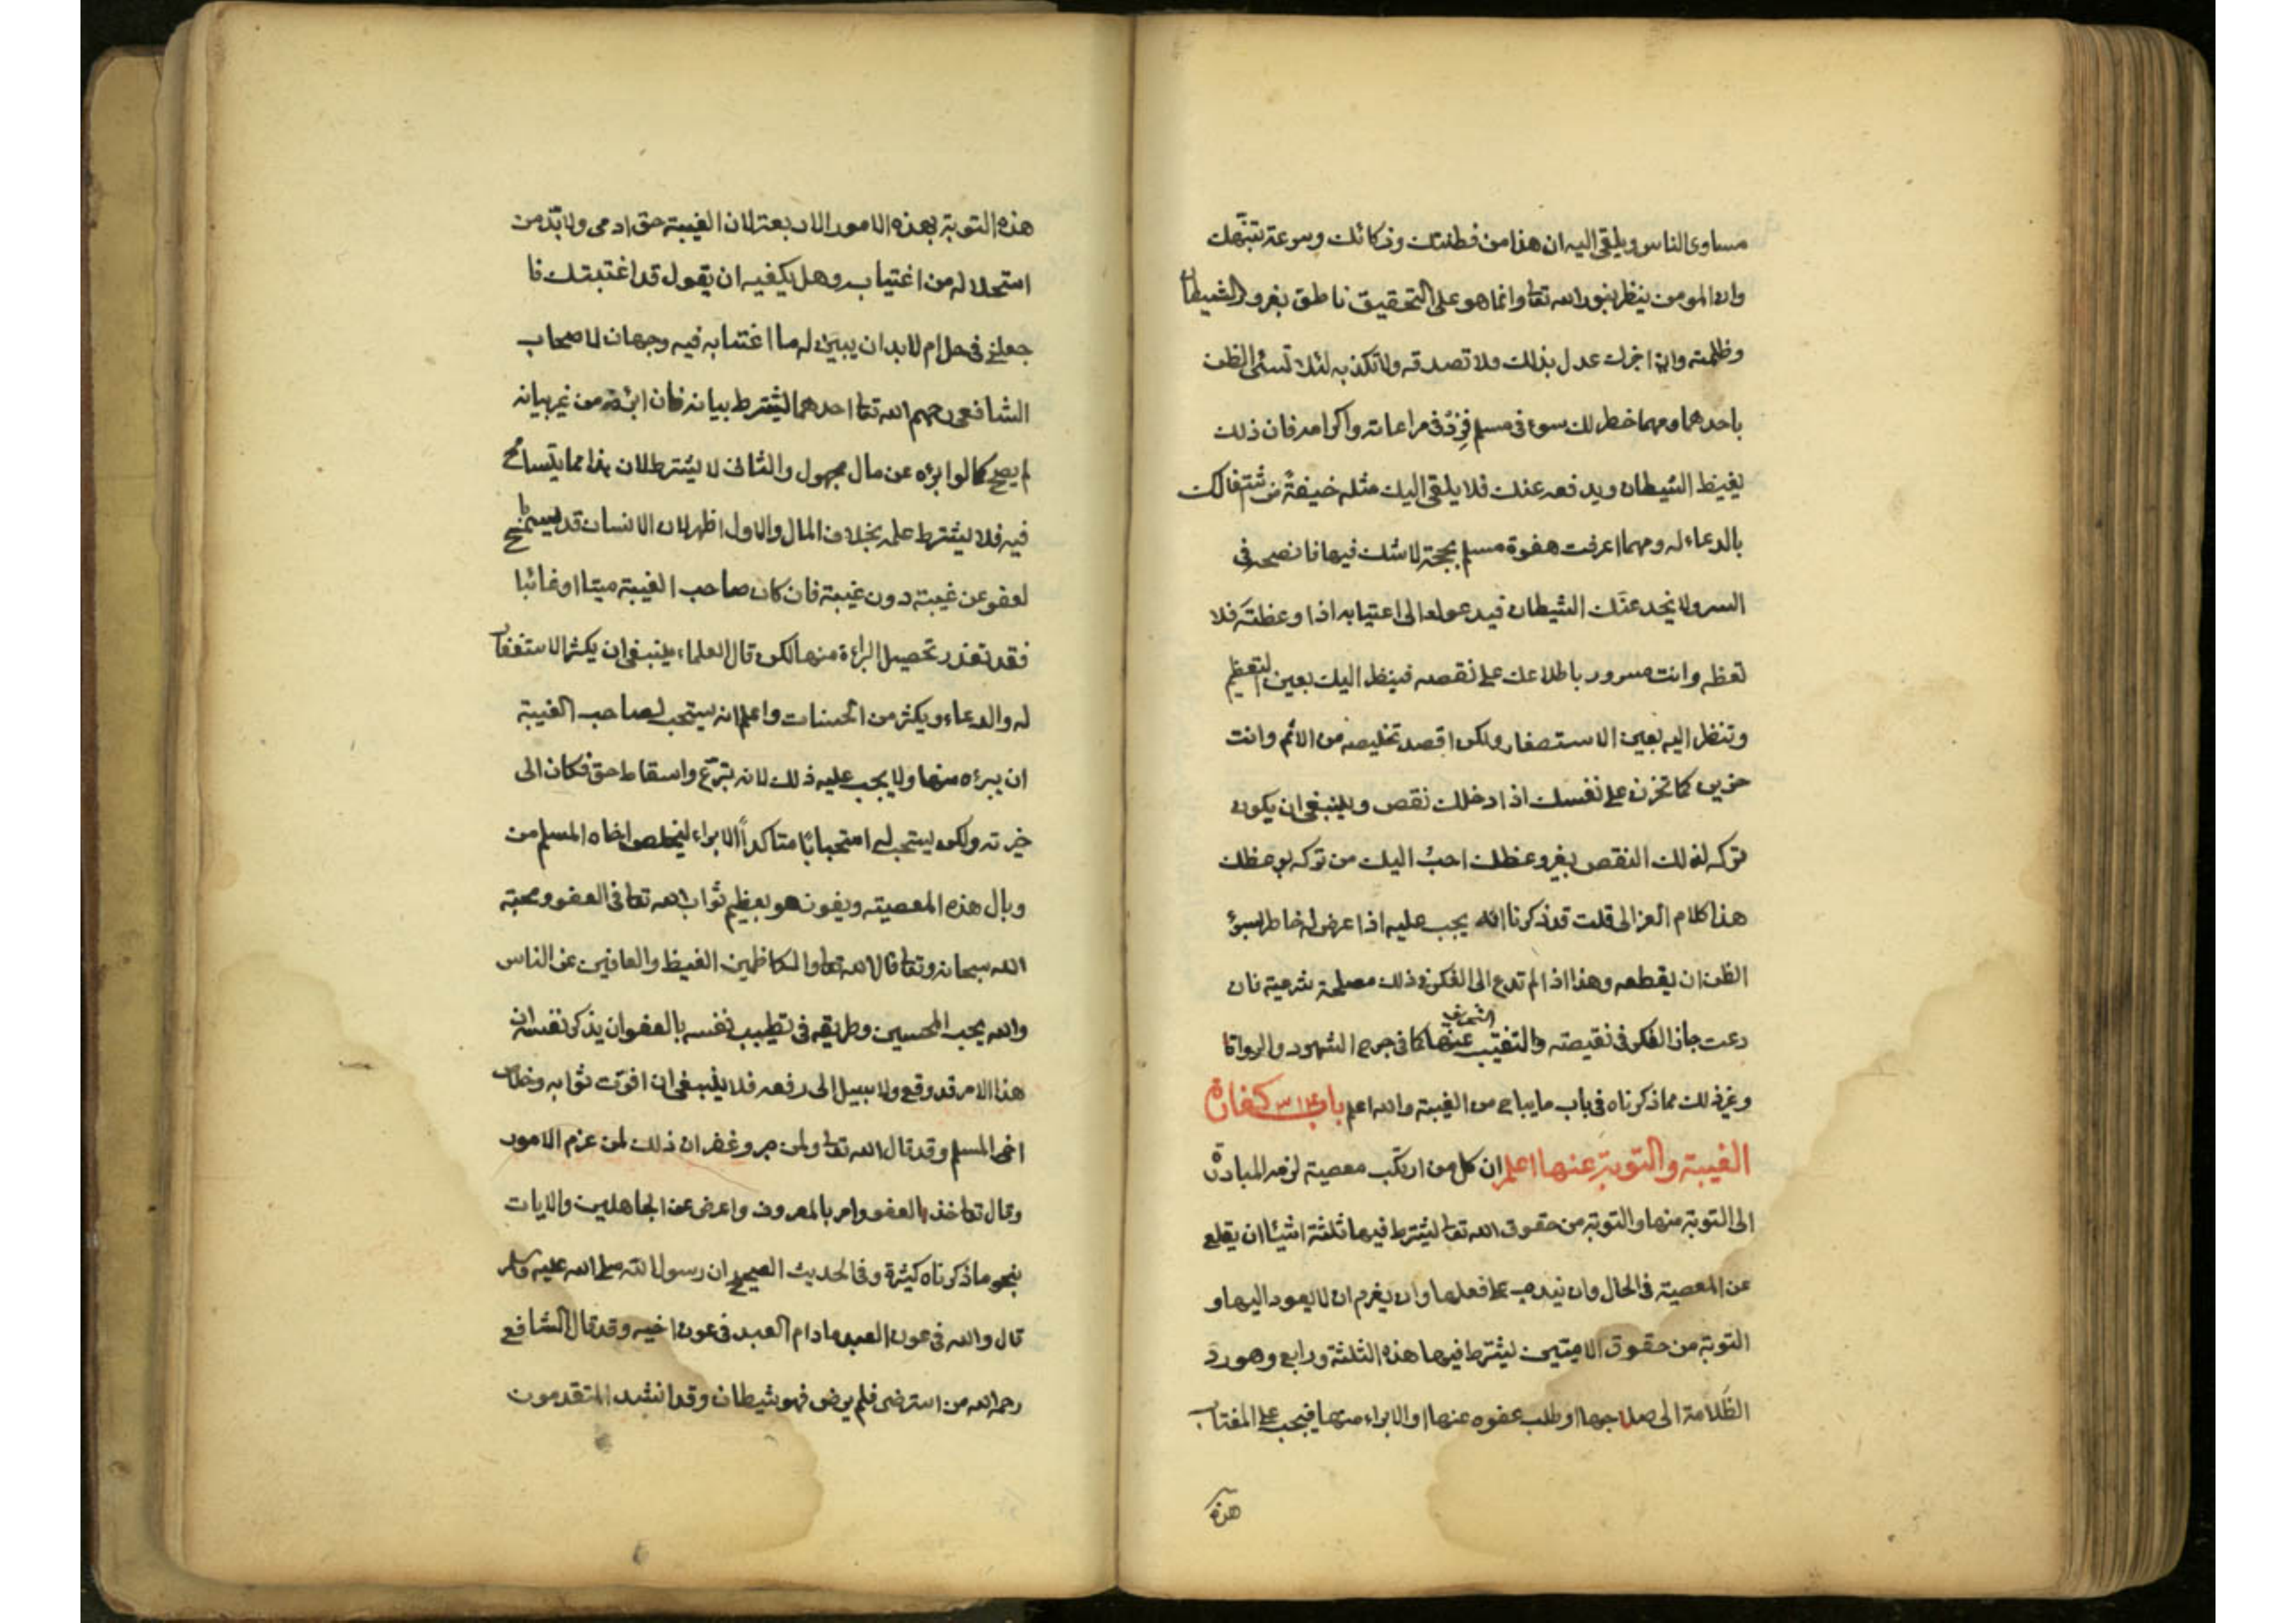 مساوى الناس ويلقى اليه ان هذا من فطنتك وذكائك وسرعة تنبّهك
وان المومن ينظر بنور الله تعا وانما هو على التحقيق ناطق بغرور الشيطان
وظلمته وان اخبرك عدل بذلك ولا تصدقه ولا تكذبه لئلا تسئ الظن
باحدهما ومهما خطر لك سوء فى مسلم فزد فى مراعاته واكرامه فان ذلك
يغيظ الشيطان ويدفعه عنك فلا يلقى اليك مثله خيفة من اشتغالك
بالدعاء له ومهما عرفت هفوة مسلم بحجة لا شك فيها فانصحه فى
السر ولا يخدعنّك الشيطان فيدعوك الى اغتيابه اذا وعظته فلا
تعظه وانت مسرور باطلاعك على نقصه فينظر اليك بعين التعظيم
وتنظر اليه بعين الاستصغار ولكن اقصد تخليصه من الاثم وانت
حزين كما تحزن على نفسك اذا دخلك نقص وينبغى ان يكون
تركه لذلك النقص بغير وعظك احبّ اليك من تركه بوعظك
هذا كلام الغزالى قلت قد ذكرنا انه يجب عليه اذا عرض له خاطر بسوء
الظن ان يقطعه وهذا اذا لم تدع الى الفكر فى ذلك مصلحة شرعية فان
دعت جاز الفكر فى نقيصته والتنقيب عنها كما فى جرح الشهود والرواة
وغير ذلك مما ذكرناه فى باب ما يباح من الغيبة والله اعلم باب ٣١٤ كفارة
الغيبة والتوبة عنها اعلم ان كل من ارتكب معصية لزمه المبادرة
الى التوبة منها والتوبة من حقوق الله تعا يشترط فيها ثلثة اشياء ان يقلع
عن المعصية فى الحال وان يندم على فعلها وان يعزم ان لا يعود اليها و
التوبة من حقوق الادميين يشترط فيها هذه الثلثة ورابع وهو رد
الظلامة الى صاحبها او طلب عفوه عنها او الابراء منها فيجب على المغتاب
هذه
هذه التوبة بهذه الامور الاربعة لان الغيبة حق ادمى ولا بدّ من
استحلاله من اغتيابه وهل يكفيه ان يقول قد اغتبتك فا
جعلنى فى حل ام لا بد ان يبين له ما اغتابه فيه وجهان لاصحاب
الشافعى رحمهم الله تعا احدهما يشترط بيانه فان ابرئه من غير بيانه
لم يصح كما لو ابرئه عن مال مجهول والثانى لا يشترط لان هذا مما يتسامح
فيه فلا يشترط علمه بخلاف المال والاول اظهر لان الانسان قد يسمح
لعفو عن غيبة دون غيبة فان كان صاحب الغيبة ميتا او غائبا
فقد تعذر تحصيل البراءة منها لكن قال العلماء ينبغى ان يكثر الاستغفار
له والدعاء ويكثر من الحسنات واعلم انه يستحب لصاحب الغيبة
ان يبرئه منها ولا يجب عليه ذلك لانه تبرّع واسقاط حق فكان الى
خيرته ولكن يستحب له استحبابًا متاكدًا الابراء ليخلص اخاه المسلم من
وبال هذه المعصية ويفوز هو بعظيم ثواب الله تعا فى العفو ومحبة
الله سبحانه وتعا قال الله تعا والكاظمين الغيظ والعافين عن الناس
والله يحب المحسنين وطريقه فى تطييب نفسه بالعفو ان يذكر نفسه ان
هذا الامر قد وقع ولا سبيل الى رفعه فلا ينبغى ان افوّت ثوابه وخلاص
اخى المسلم وقد قال الله تعا ولمن صبر وغفر ان ذلك لمن عزم الامور
وقال تعا خذ العفو وامر بالمعروف واعرض عن الجاهلين والايات
بنحو ما ذكرناه كثيرة وفى الحديث الصحيح ان رسول الله صلى الله عليه وسلم
قال والله فى عون العبد ما دام العبد فى عون اخيه وقد قال الشافعى
رحمه الله من استرضى فلم يرض فهو شيطان وقد انشد المتقدمون